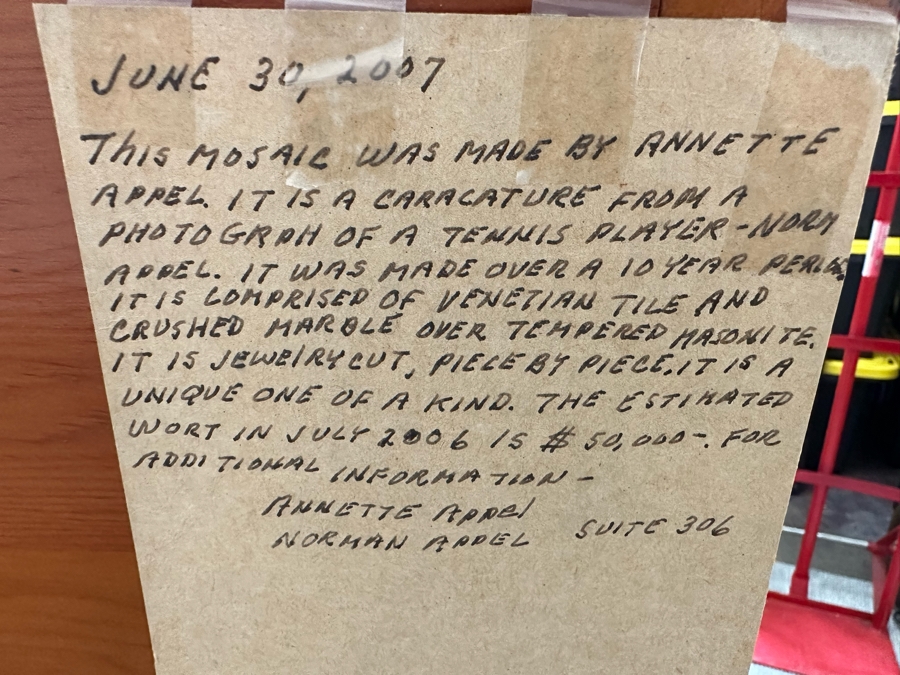 JUNE 30, 2007
THIS MOSAIC WAS MADE BY ANNETTE
APPEL. IT IS A CARACATURE FROM A
PHOTOGRPH OF A TENNIS PLAYER - NORM
APPEL. IT WAS MADE OVER A 10 YEAR
IT IS COMPRISED OF VENETIAN TILE AND
CRUSHED MARBLE OVER TEMPERED MASONITE.
IT IS JEWElRY CUT, PIECE BY PIECE. IT IS A
UNIQUE ONE OF A KIND. THE ESTIMATED
WORT IN JULY 2006 IS $50,000-. FOR
ADDITIONAL INFORMATION -
ANNETTE APPEl
NORMAN APPEL SUITE 306